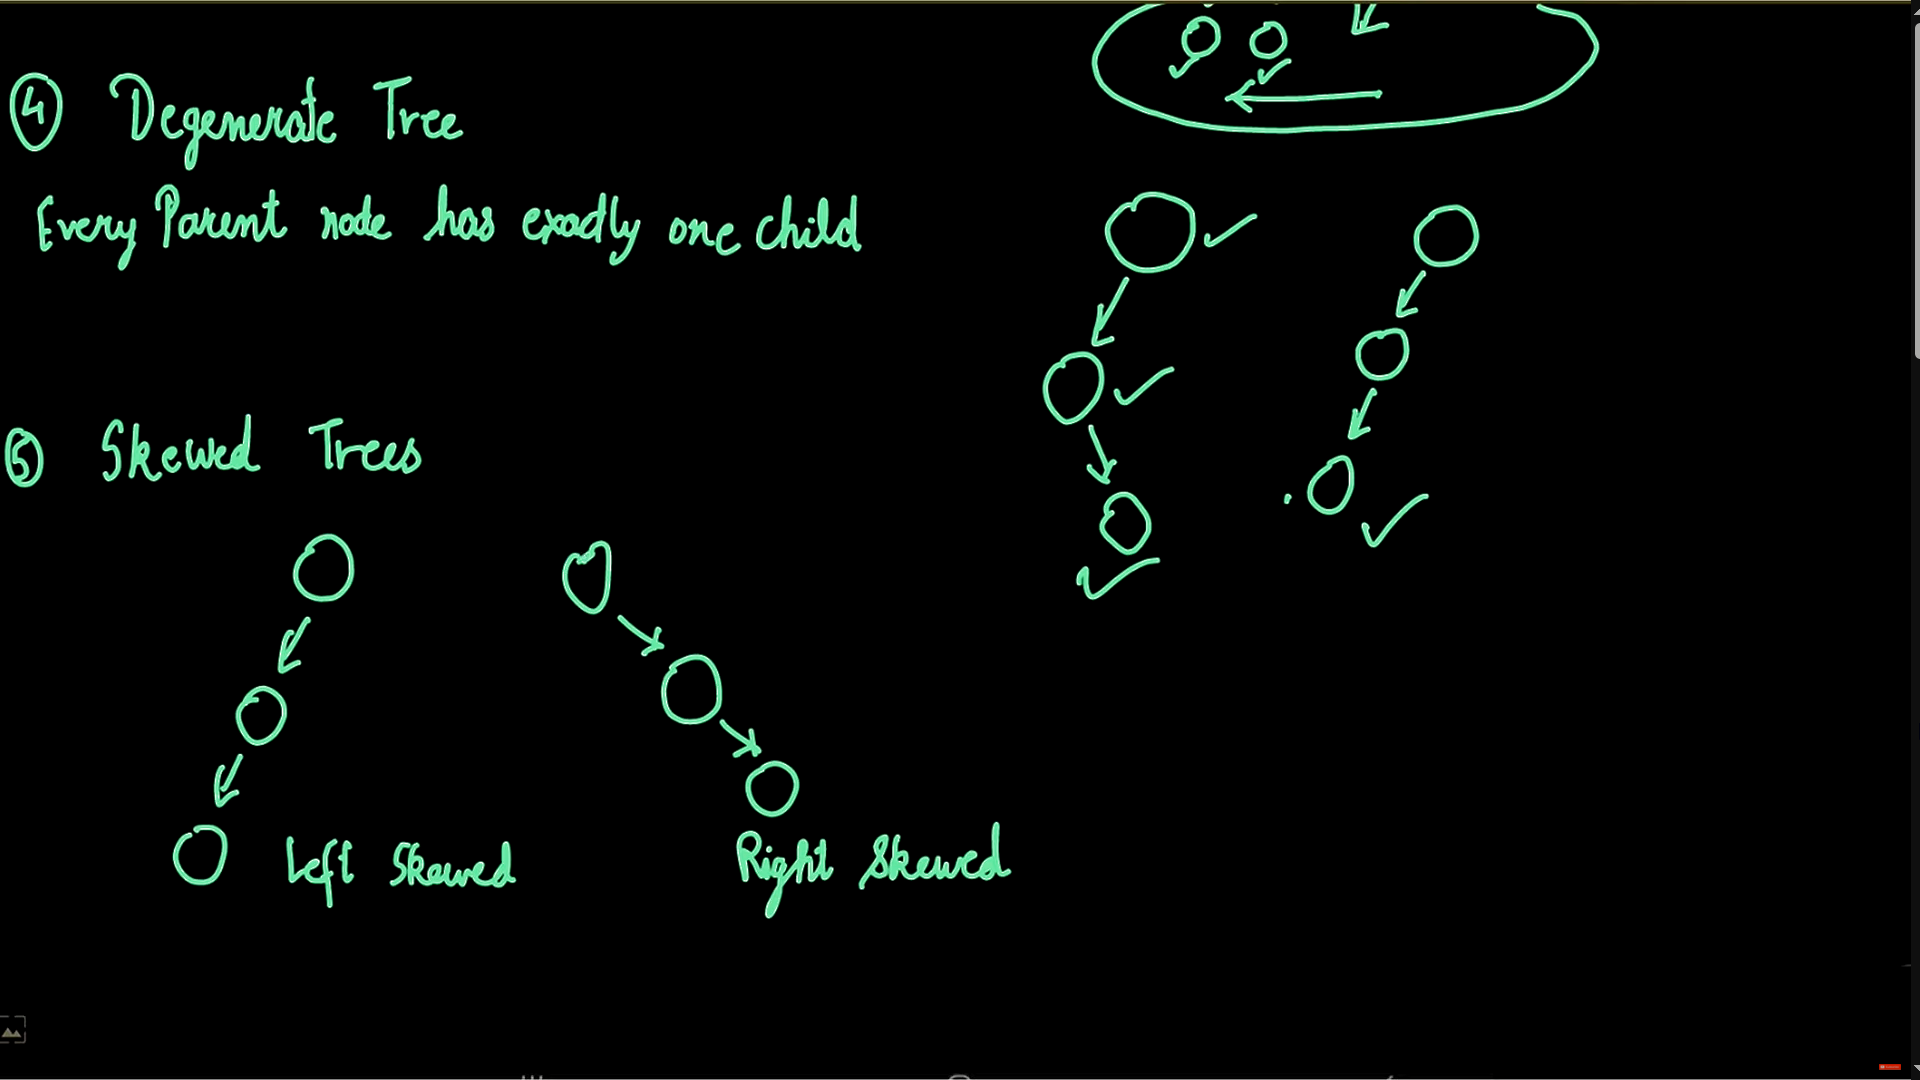 4 Degenerate Tree
Every Parent node has exactly one child
5 Skewed Trees
Left Skewed
Right Skewed